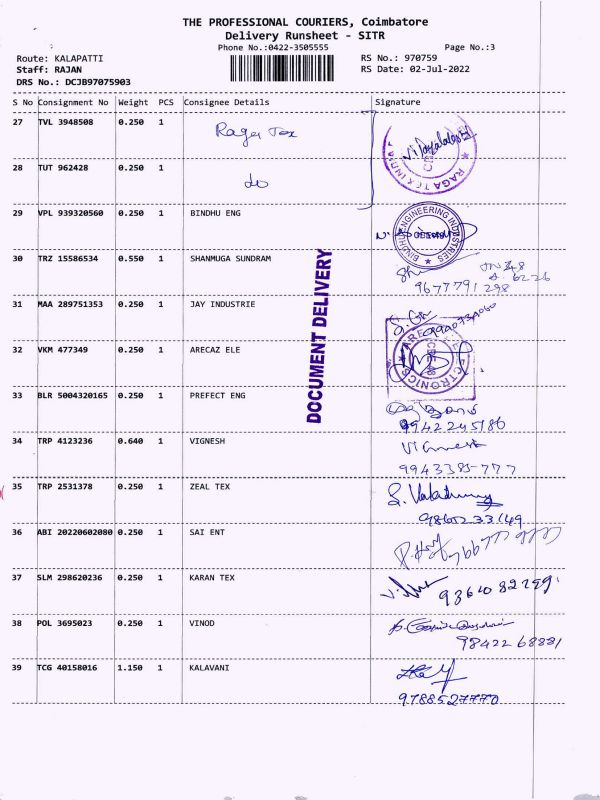 THE PROFESSIONAL COURIERS, Coimbatore
Delivery Runsheet - SITR
Phone No.:0422-3505555 Page No.:3
Route: KALAPATTI RS No.: 970759
Staff: RAJAN RS Date: 02-Jul-2022
DRS No.: DCJB97075903
S No Consignment No Weight PCS Consignee Details Signature
27 TVL 3948508 0.250 1 Raga Tex
28 TUT 962428 0.250 1 do
RAGA TEX INDIA
29 VPL 939320560 0.250 1 BINDHU ENG
BINDHU ENGINEERING INDUSTRIES
30 TRZ 15586534 0.550 1 SHANMUGA SUNDRAM
9677791298
DOCUMENT DELIVERY
31 MAA 289751353 0.250 1 JAY INDUSTRIE
32 VKM 477349 0.250 1 ARECAZ ELE
ELECTRONICS
33 BLR 5004320165 0.250 1 PREFECT ENG
9942245186
34 TRP 4123236 0.640 1 VIGNESH Vignesh
9943385777
35 TRP 2531378 0.250 1 ZEAL TEX
36 ABI 20220602080 0.250 1 SAI ENT
37 SLM 298620236 0.250 1 KARAN TEX
38 POL 3695023 0.250 1 VINOD
39 TCG 40158016 1.150 1 KALAVANI
9788527770